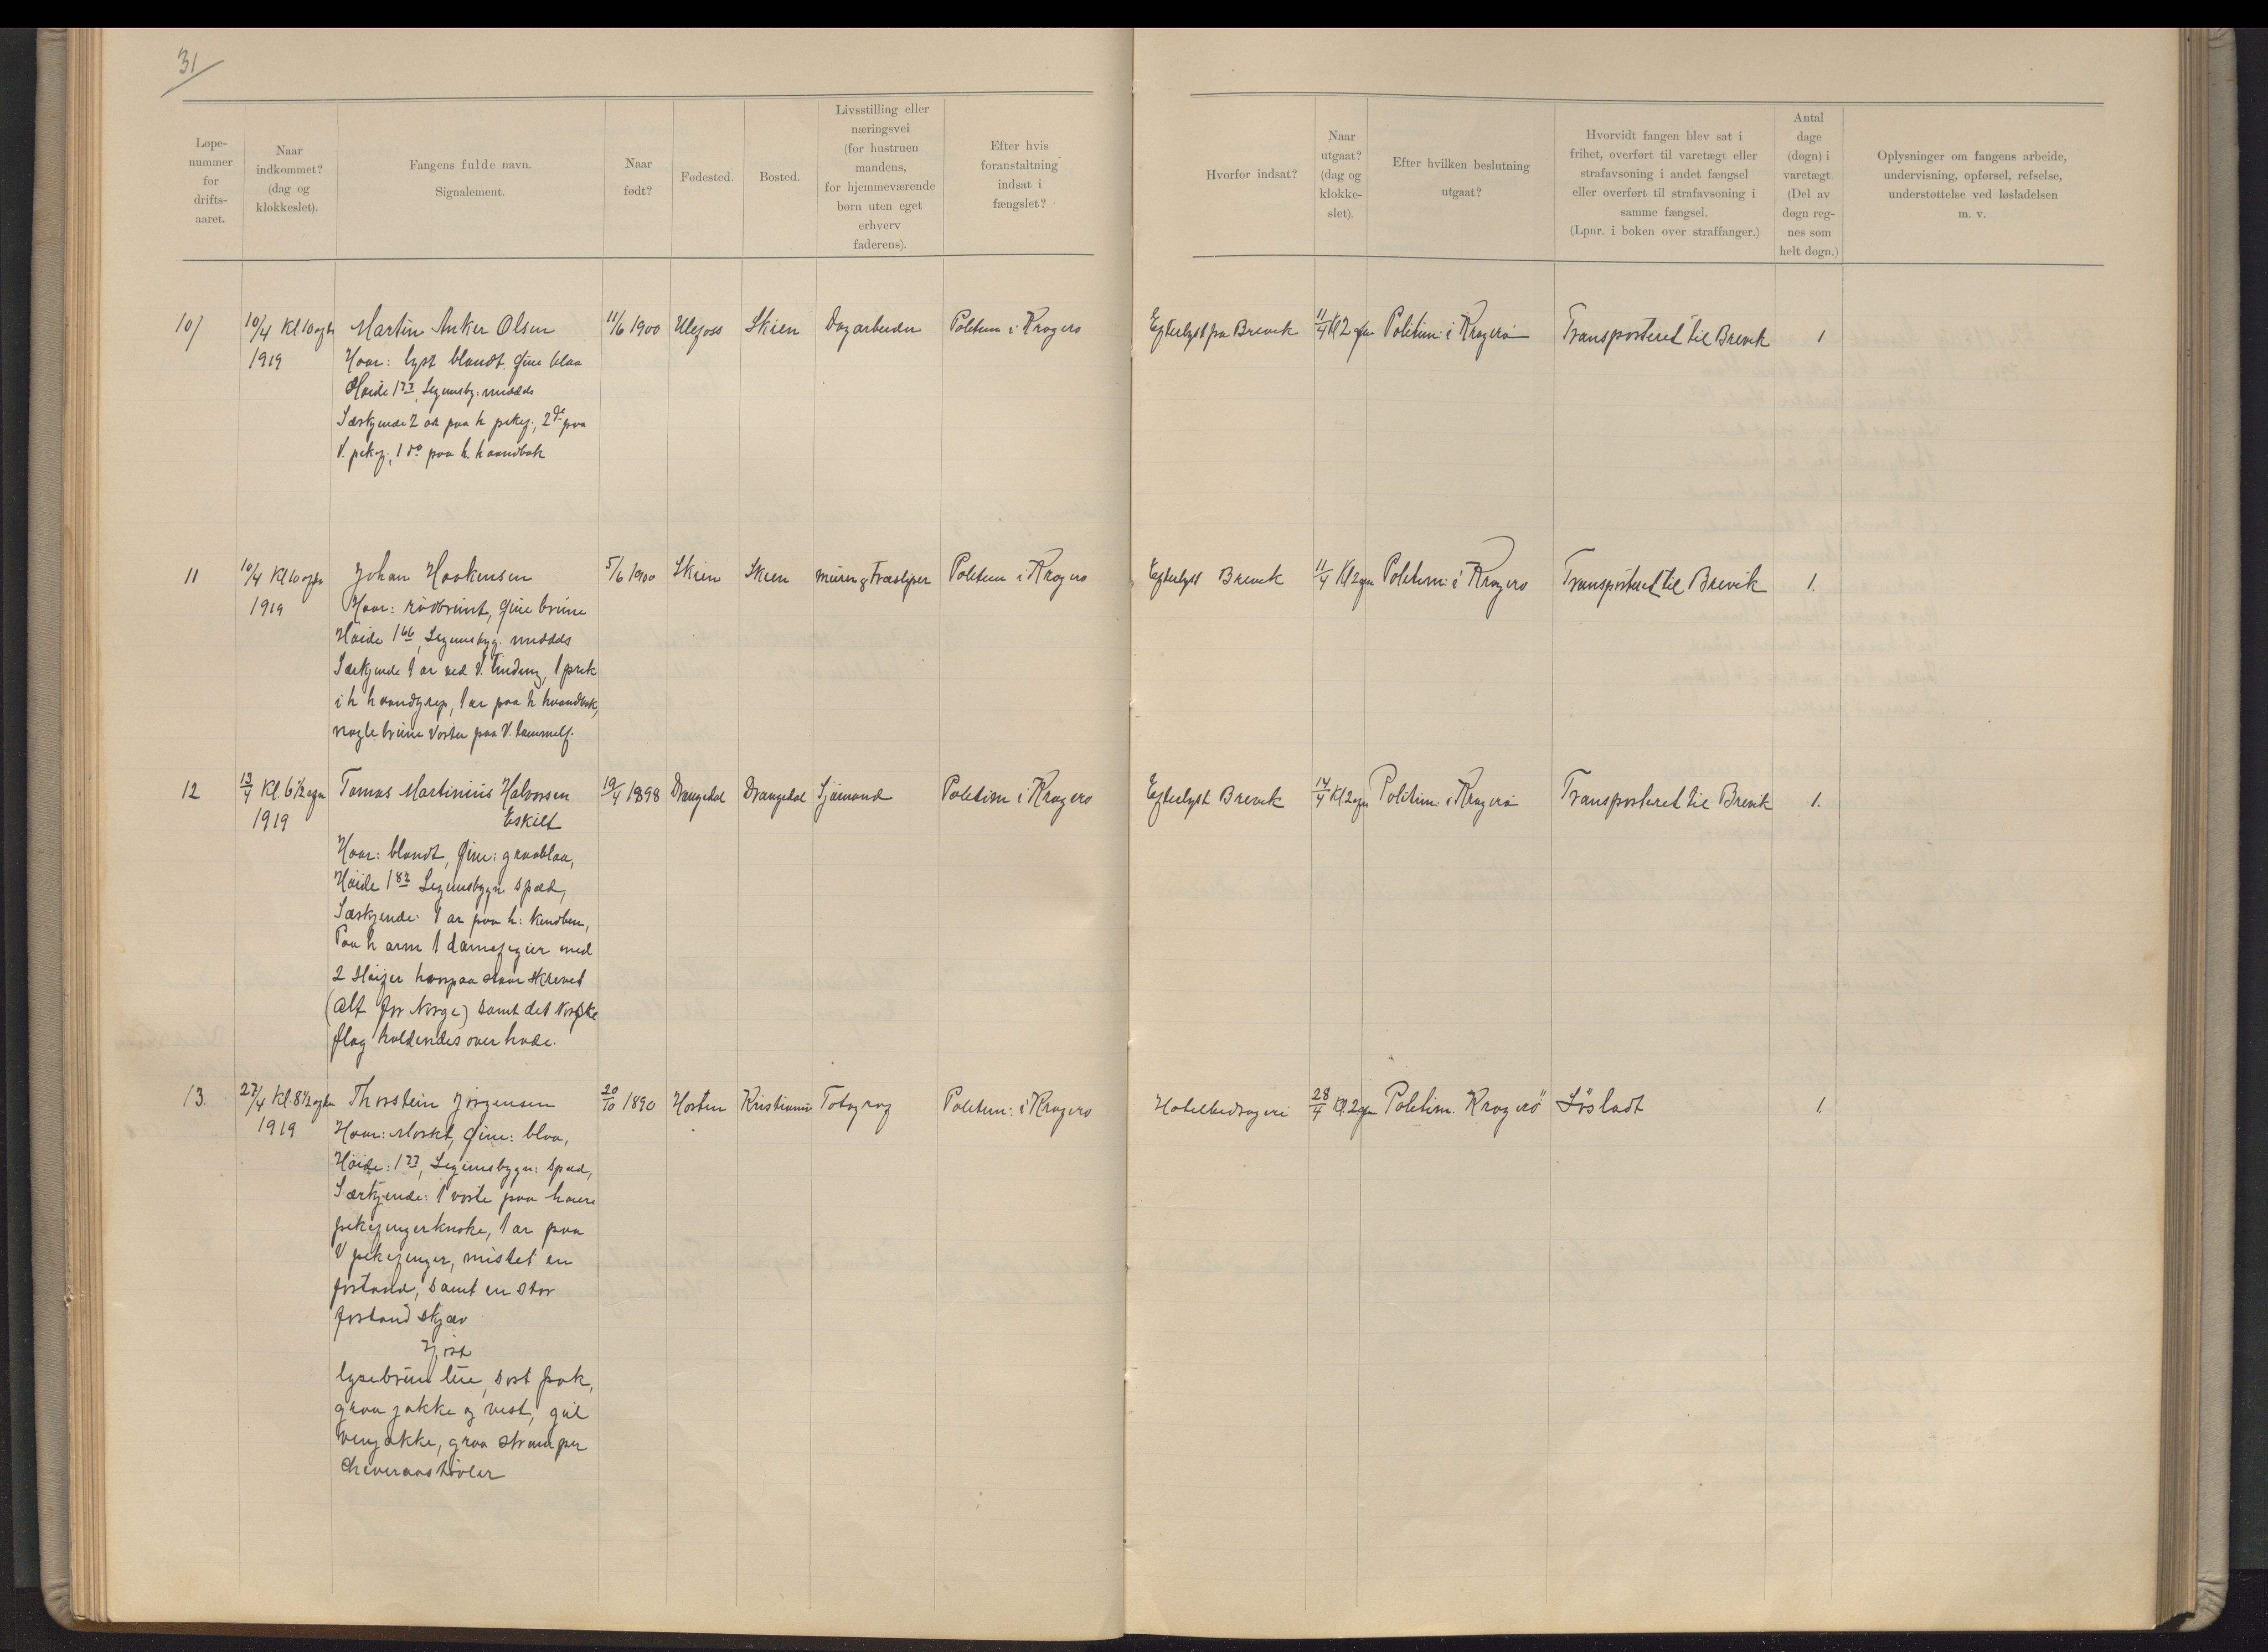 31
Løpe-
nummer
for
drifts-
aaret.
Naar
indkommet?
(dag og
klokkeslet).
Fangens fulde navn.
Signalement.
Naar
født?
Fødested.
Bosted.
Livsstilling eller
næringsvei
(for hustruen
mandens,
for hjemmeværende
børn uten eget
erhverv
faderens).
Efter hvis
foranstaltning
indsat i
fængslet?
Hvorfor indsat?
Naar
utgaat?
(dag og
klokke-
slet).
Efter hvilken beslutning
utgaat?
Hvorvidt fangen blev sat i
frihet, overført til varetægt eller
strafavsoning i andet fængsel
eller overført til strafavsoning i
samme fængsel.
(Lpnr. i boken over straffanger.)
Antal
dage
(døgn) i
varetægt.
(Del av
døgn reg-
nes som
helt døgn.)
Oplysninger om fangens arbeide,
undervisning, opførsel, refselse,
understøttelse ved løsladelsen
m. v.
10/ 10/4 Kl 10 Martin Anker Olsen 11/6 1900 Ulefoss Skien Dagarbeider Politim i Kragerø Efterlyst fra Brevik 11/4 Kl 2 Politim: i Kragerø Transporteret til Brevik 1
1919 Haar: lyst blandt Øine blaa
Høide 1 77, Legemsby: middels
Særkjende 2 ar paa h pekef., 2 paa
V. pekef., 1 do paa h. haandbak
11 10/4 Kl 10 Johan Haakensen 5/6 1900 Skien Skien Murer og Træsliper Politim i Kragerø Efterlyst Brevik 11/4 Kl 2 Politim: i Kragerø Transporteret til Brevik 1.
1919 Haar: rødbrunt, Øine brune
Høide 1 66, Legemsbyg: middels
Særkjende 1 ar ved V. tinding, 1 prik
i h haandgrep, 1 ar paa h haandbak,
nogle brune vorter paa V. tommelf.
12 13/4 Kl. 6 1/2 Tomas Martinius Halvorsen 19/4 1898 Drangedal Drangedal Sjømand Politim i Kragerø Efterlyst Brevik 14/4 Kl 2 Politim: i Kragerø Transporteret til Brevik 1.
1919 Eskilt
Haar: blandt, Øine: graablaa,
Høide 1 Legemsbygn spæd,
Særkjende: 1 ar paa h: kindben,
Paa h arm 1 damefigur med
2 sløifer hvorpaa staar skrevet
(Alt for Norge) samt det Norske
flag holdendes over hode.
13. 27/4 Kl. 8 1/2 Thorstein Jørgensen 20/10 1890 Horten Kristiania Fotograf Politim: i Kragerø Hotelbedrageri 28/4 Kl 2 Politim. Kragerø Løsladt 1.
1919 Haar: Morkt, Øine: blaa,
Høide: 1 77, Legemsbygn: spæd,
Særkjende: 1 vorte paa høire
pekefingerknoke, 1 ar paa
V pekefinger, mistet en
fortand, samt en stor
fortand skjæv
lysebrun lue, sort frak,
graa jakke og vest, gul
graa strømper